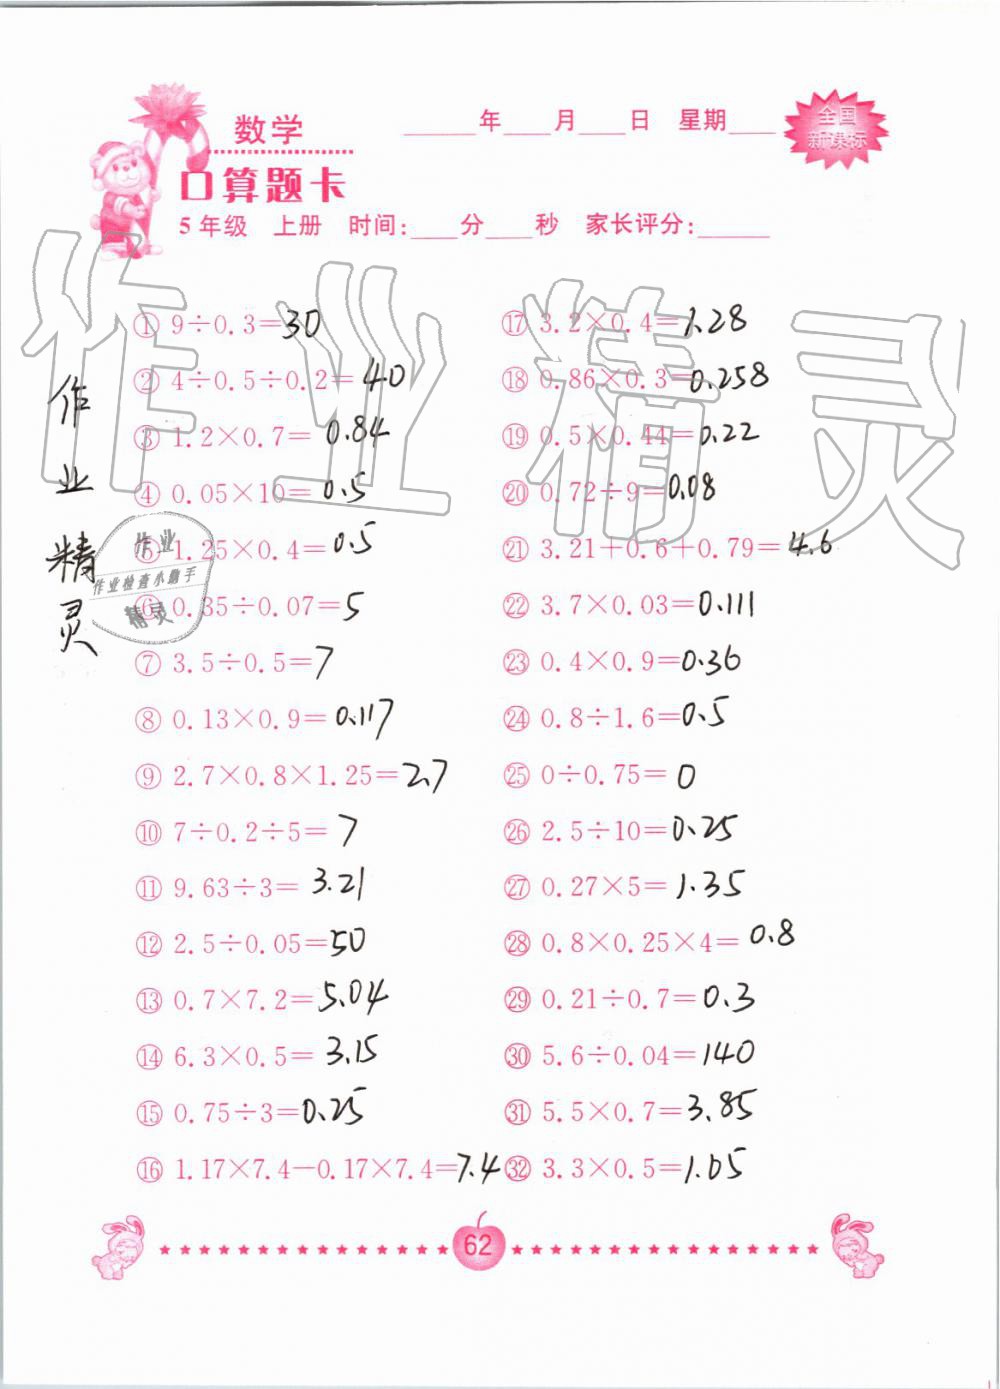 数学
____年____月____日 星期____
全国
新课标
口算题卡
5年级 上册 时间:____分____秒 家长评分:______
作业精灵
作业精灵
作业
作业检查小助手
精灵
① 9÷0.3=30
② 4÷0.5÷0.2=40
③ 1.2×0.7=0.84
④ 0.05×10=0.5
⑤ 1.25×0.4=0.5
⑥ 0.35÷0.07=5
⑦ 3.5÷0.5=7
⑧ 0.13×0.9=0.117
⑨ 2.7×0.8×1.25=2.7
⑩ 7÷0.2÷5=7
⑪ 9.63÷3=3.21
⑫ 2.5÷0.05=50
⑬ 0.7×7.2=5.04
⑭ 6.3×0.5=3.15
⑮ 0.75÷3=0.25
⑯ 1.17×7.4-0.17×7.4=7.4
⑰ 3.2×0.4=1.28
⑱ 0.86×0.3=0.258
⑲ 0.5×0.44=0.22
⑳ 0.72÷9=0.08
㉑ 3.21+0.6+0.79=4.6
㉒ 3.7×0.03=0.111
㉓ 0.4×0.9=0.36
㉔ 0.8÷1.6=0.5
㉕ 0÷0.75=0
㉖ 2.5÷10=0.25
㉗ 0.27×5=1.35
㉘ 0.8×0.25×4=0.8
㉙ 0.21÷0.7=0.3
㉚ 5.6÷0.04=140
㉛ 5.5×0.7=3.85
㉜ 3.3×0.5=1.65
62